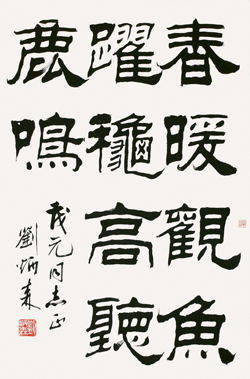 春暖觀魚
躍龝高聽
鹿鳴
茂元同志正
劉炳森